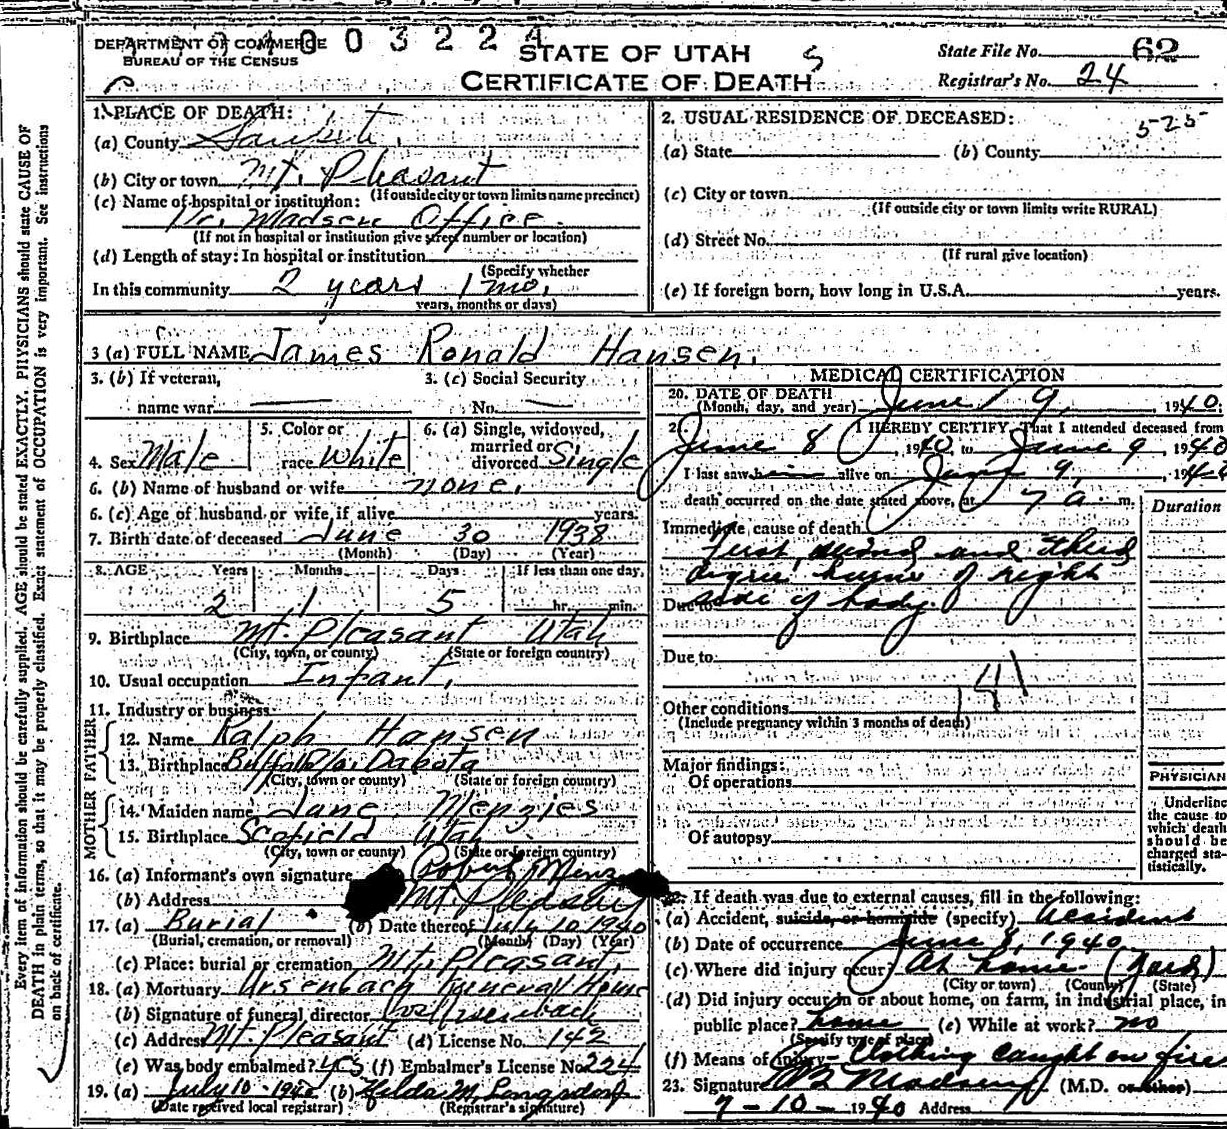 DEPARTMENT OF COMMERCE
BUREAU OF THE CENSUS
4 0 0 3 2 2 4
STATE OF UTAH
CERTIFICATE OF DEATH
State File No. 62
Registrar's No. 24
1. PLACE OF DEATH:
(a) County
(b) City or town Mt. Pleasant
(If outside city or town limits name precinct)
(c) Name of hospital or institution:
Dr. Madsen Office.
(If not in hospital or institution give street number or location)
(d) Length of stay: In hospital or institution
(Specify whether
In this community 2 years 1 mo.
years, months or days)
2. USUAL RESIDENCE OF DECEASED:
525
(a) State (b) County
(c) City or town
(If outside city or town limits write RURAL)
(d) Street No.
(If rural give location)
(e) If foreign born, how long in U.S.A. years.
3 (a) FULL NAME James Ronald Hansen.
3. (b) If veteran,
name war
3. (c) Social Security
No.
4. Sex Male
5. Color or
race White
6. (a) Single, widowed,
married or
divorced Single
6. (b) Name of husband or wife none.
6. (c) Age of husband or wife, if alive years.
7. Birth date of deceased June 30 1938
(Month) (Day) (Year)
8. AGE Years Months Days If less than one day,
2 1 5 hr. min.
9. Birthplace Mt. Pleasant Utah
(City, town, or county) (State or foreign country)
10. Usual occupation Infant.
11. Industry or business
FATHER
12. Name Ralph Hansen
13. Birthplace Buffalo, Dakota
(City, town or county) (State or foreign country)
MOTHER
14. Maiden name Jane Menzies
15. Birthplace Scofield Utah
(City, town or county) (State or foreign country)
16. (a) Informant's own signature Robert Menz
(b) Address Mt. Pleasant
17. (a) Burial (b) Date thereof July 10 1940
(Burial, cremation, or removal) (Month) (Day) (Year)
(c) Place: burial or cremation Mt. Pleasant,
18. (a) Mortuary Ursenbach Funeral Home
(b) Signature of funeral director Ursenbach
(c) Address Mt. Pleasant (d) License No. 142
(e) Was body embalmed? yes (f) Embalmer's License No. 224
19. (a) July 10 - 1940 (b) Hilda M. Longsdorf
(Date received local registrar) (Registrar's signature)
MEDICAL CERTIFICATION
20. DATE OF DEATH
(Month, day, and year) June 9, 1940.
I HEREBY CERTIFY, That I attended deceased from
June 8, 1940 to June 9 1940
I last saw him alive on June 9, 1940
death occurred on the date stated above, at 7 a m.
Duration
Immediate cause of death
First, second and third
degree burns of right
Due to side of body.
Due to
141
Other conditions
(Include pregnancy within 3 months of death)
Major findings:
Of operations
Of autopsy
PHYSICIAN
Underline
the cause to
which death
should be
charged sta-
tistically.
If death was due to external causes, fill in the following:
(a) Accident, suicide, or homicide (specify) Accident
(b) Date of occurrence June 8, 1940
(c) Where did injury occur? At home. (yard)
(City or town) (County) (State)
(d) Did injury occur in or about home, on farm, in industrial place, in
public place? home (e) While at work? no
(Specify type of place)
(f) Means of injury - Clothing caught on fire
23. Signature Madsen (M.D. or other)
7 - 10 - 1940 Address
Every item of information should be carefully supplied. AGE should be stated EXACTLY. PHYSICIANS should state CAUSE OF
DEATH in plain terms, so that it may be properly classified. Exact statement of OCCUPATION is very important. See instructions
on back of certificate.